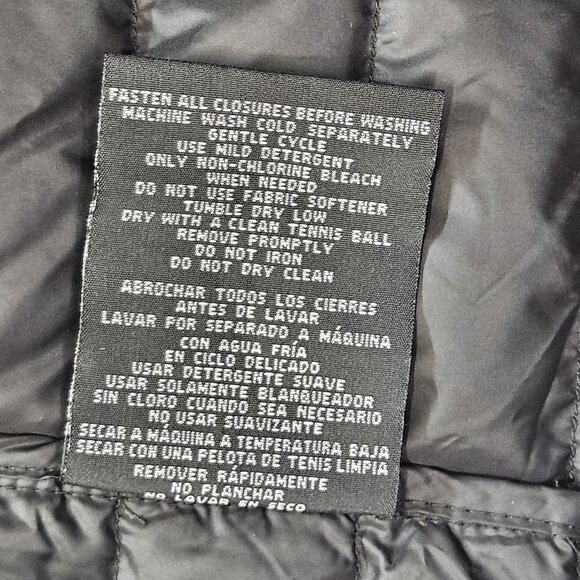 FASTEN ALL CLOSURES BEFORE WASHING
MACHINE WASH COLD SEPARATELY
GENTLE CYCLE
USE MILD DETERGENT
ONLY NON-CHLORINE BLEACH
WHEN NEEDED
DO NOT USE FABRIC SOFTENER
TUMBLE DRY LOW
DRY WITH A CLEAN TENNIS BALL
REMOVE PROMPTLY
DO NOT IRON
DO NOT DRY CLEAN
ABROCHAR TODOS LOS CIERRES
ANTES DE LAVAR
LAVAR POR SEPARADO A MÁQUINA
CON AGUA FRÍA
EN CICLO DELICADO
USAR DETERGENTE SUAVE
USAR SOLAMENTE BLANQUEADOR
SIN CLORO CUANDO SEA NECESARIO
NO USAR SUAVIZANTE
SECAR A MÁQUINA A TEMPERATURA BAJA
SECAR CON UNA PELOTA DE TENIS LIMPIA
REMOVER RÁPIDAMENTE
NO PLANCHAR
NO LAVAR EN SECO